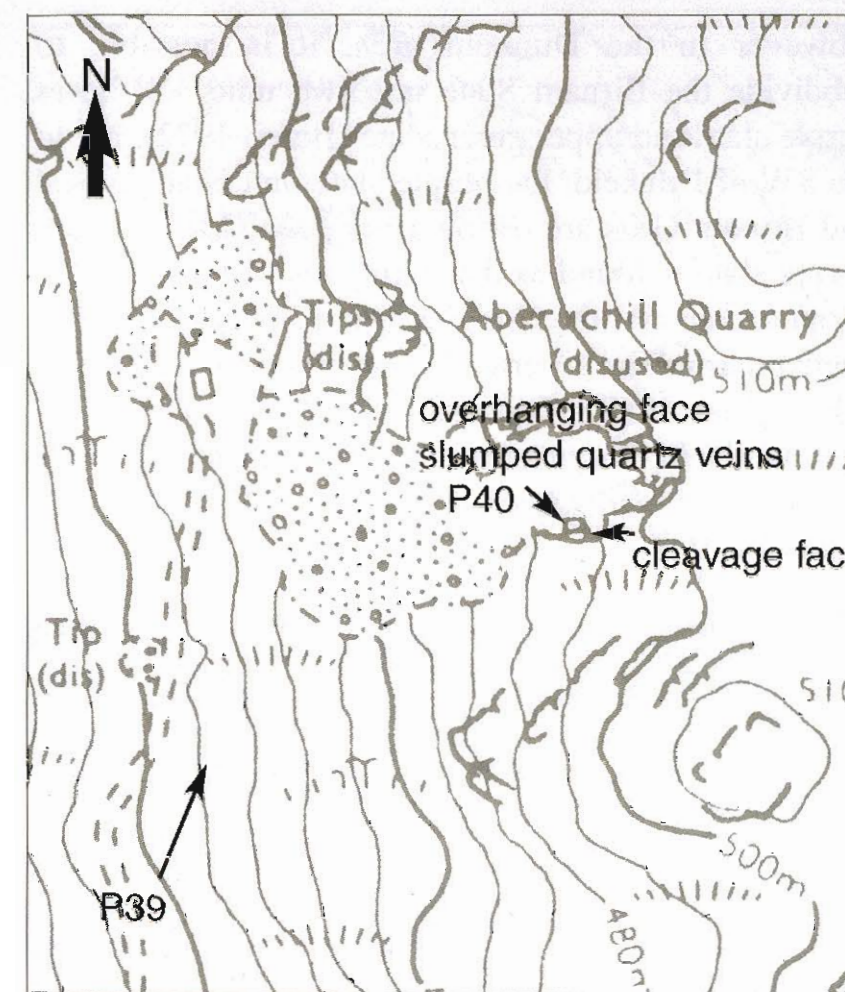 N
Tips
(dis)
Aberuchill Quarry
(disused)
510m
overhanging face
slumped quartz veins
P40
cleavage fac
Tip
(dis)
510
500m
P39
480m